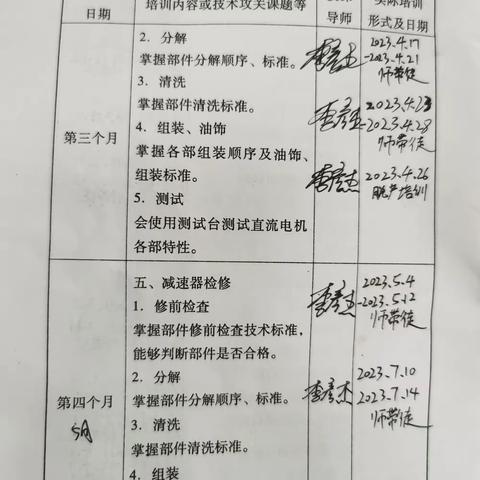 日期
培训内容或技术攻关课题等
导师
实际培训
形式及日期
第三个月
2．分解
掌握部件分解顺序、标准。
3．清洗
掌握部件清洗标准。
4．组装、油饰
掌握各部组装顺序及油饰、
组装标准。
5．测试
会使用测试台测试直流电机
各部特性。
李彦杰
2023.4.17
-2023.4.21
师带徒
李彦杰
2023.4.23
-2023.4.28
师带徒
李彦杰
2023.4.26
脱产培训
第四个月
5月
五、减速器检修
1．修前检查
掌握部件修前检查技术标准，
能够判断部件是否合格。
2．分解
掌握部件分解顺序、标准。
3．清洗
掌握部件清洗标准。
4．组装
李彦杰
2023.5.4
-2023.5.12
师带徒
李彦杰
2023.7.10
2023.7.14
师带徒